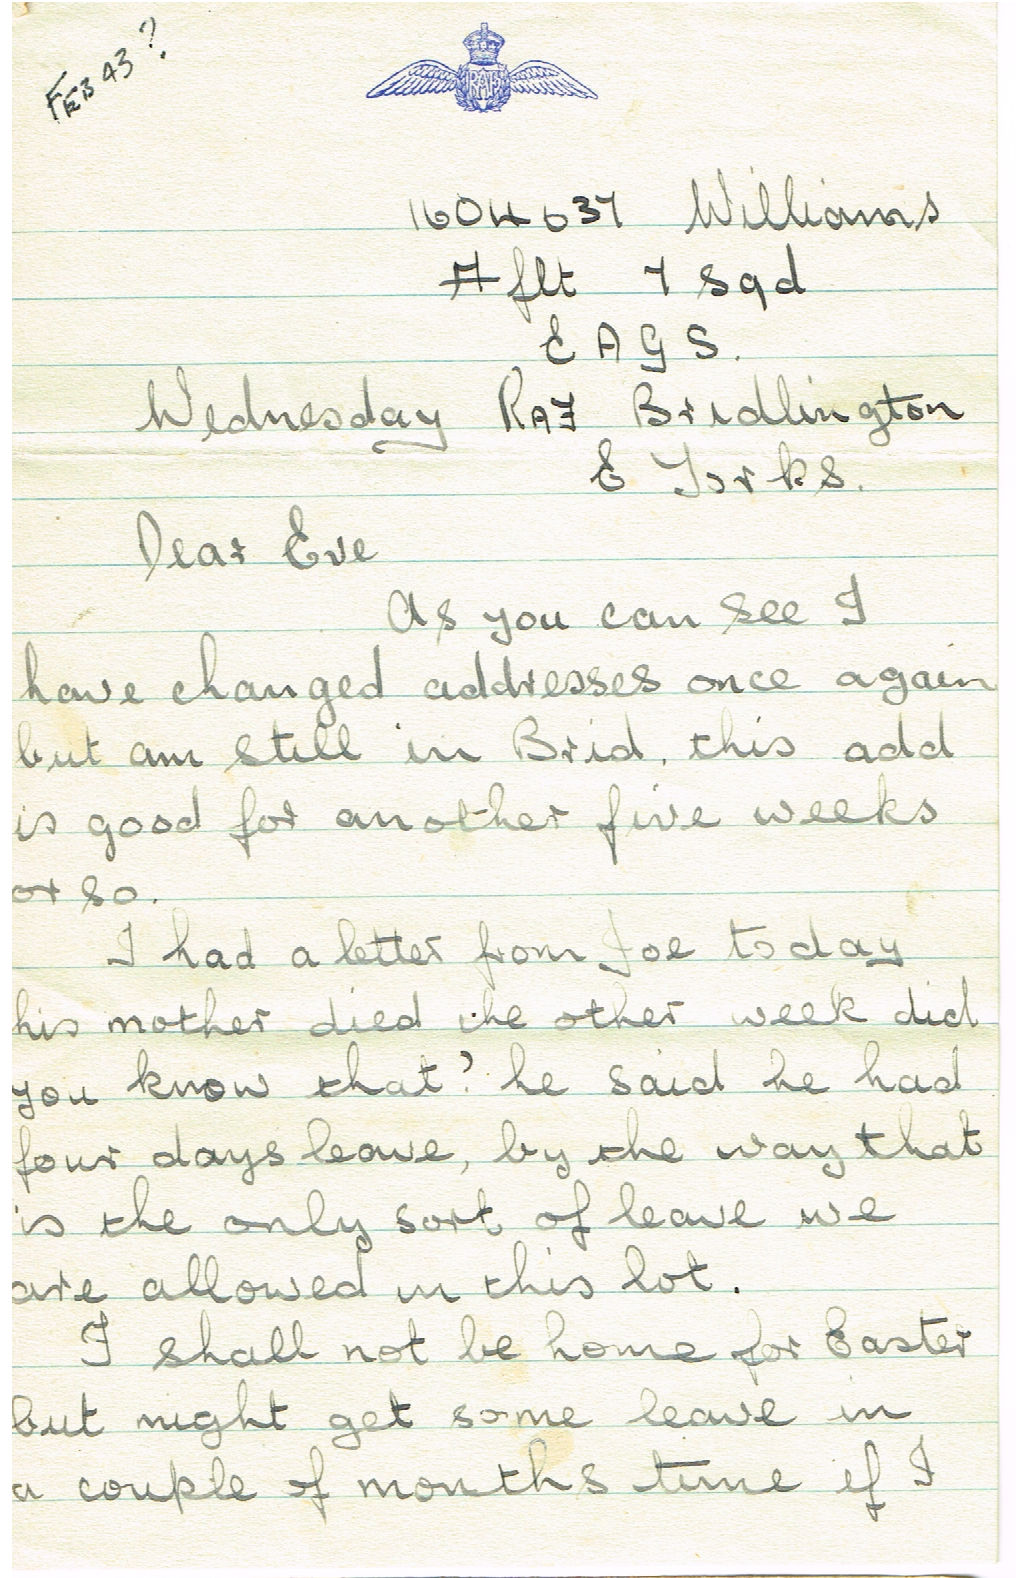 FEB 43?
RAF
1604637 Williams
A flt 7 Sqd
E A G S.
Wednesday RAF Bridlington
E Yorks.
Dear Eve
As you can see I
have changed addresses once again
but am still in Brid, this add
is good for another five weeks
or so.
I had a letter from Joe today
his mother died the other week did
you know that? he said he had
four days leave, by the way that
is the only sort of leave we
are allowed in this lot.
I shall not be home for Easter
but might get some leave in
a couple of months time if I